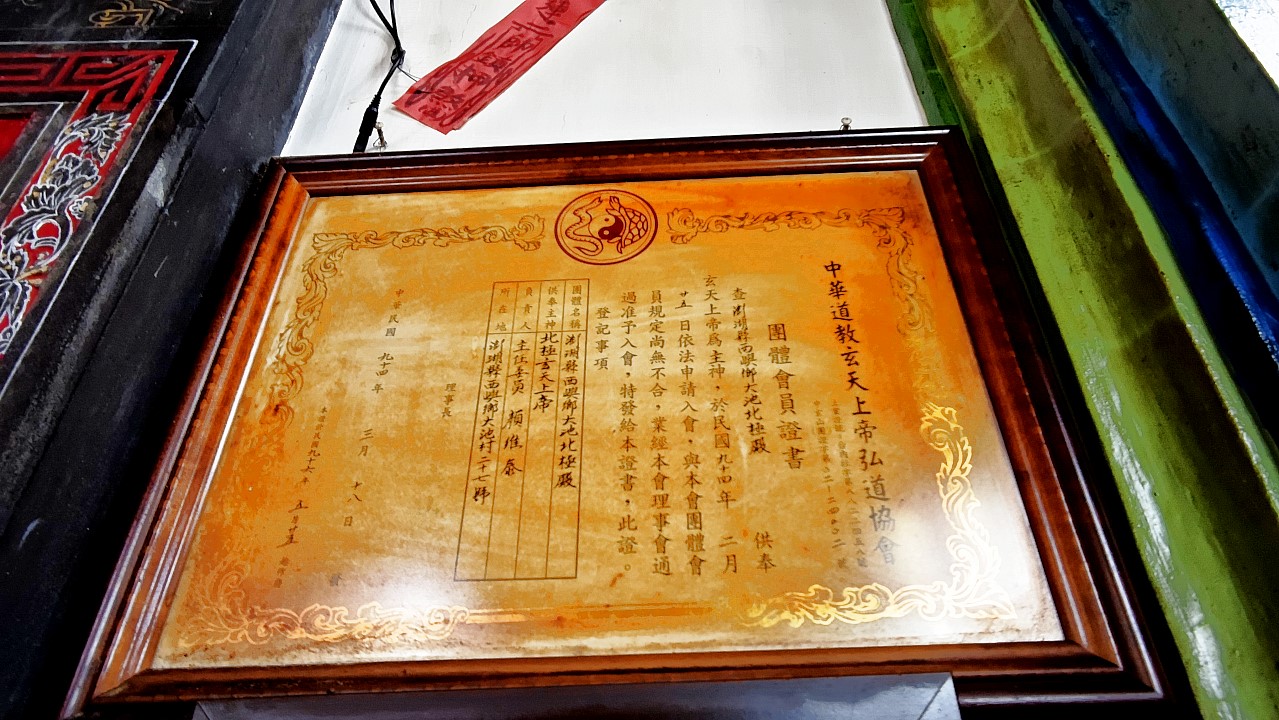 中華道教玄天上帝弘道協會
團體會員證書
查澎湖縣西嶼鄉大池北極殿 供奉
玄天上帝為主神,於民國九十四年 二月
廿五 日依法申請入會,與本會團體會
員規定尚無不合,業經本會理事會通
過准予入會,特發給本證書,此證。
登記事項
團體名稱 澎湖縣西嶼鄉大池北極殿
供奉主神 北極玄天上帝
負責人 主任委員 顏維泰
所在地 澎湖縣西嶼鄉大池村二十七號
理事長
中華民國 九十四 年 三 月 十八 日